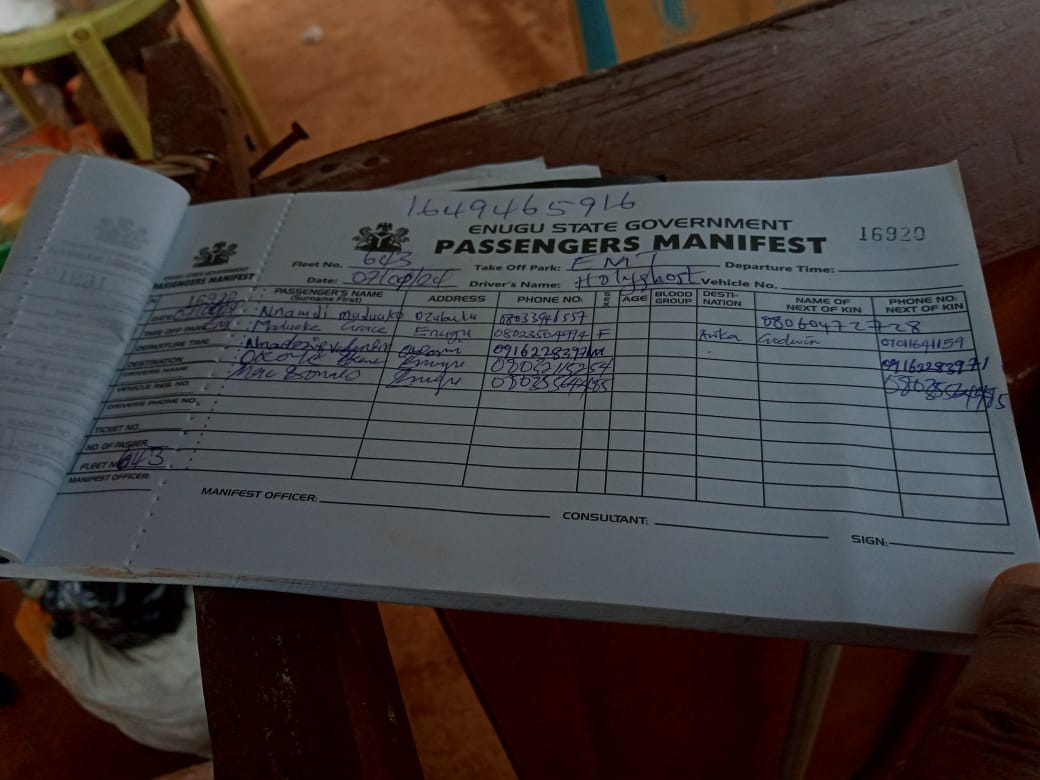 1649465916
ENUGU STATE GOVERNMENT
PASSENGERS MANIFEST
16920
Fleet No. 643 Take Off Park: EMT Departure Time:
Date: 07/09/24 Driver's Name: Holyghost Vehicle No.
ENUGU STATE GOVERNMENT
PASSENGERS MANIFEST
16920
DATE
TAKE OFF PARK
DEPARTURE TIME
DESTINATION
DRIVERS NAME
VEHICLE REG NO.
DRIVERS PHONE NO.
TICKET NO.
NO. OF PASSER
FLEET No 643
MANIFEST OFFICER:
PASSENGER'S NAME (Surname First) ADDRESS PHONE NO: SEX AGE BLOOD GROUP DESTI-NATION NAME OF NEXT OF KIN PHONE NO: NEXT OF KIN
Nnamdi maduako Ozubulu 08033946557 08060472728
Maduako Grace Enugu 08023504994 F Godwin 07011641159
09162283971 M 09162283971
Okoye Enugu 08032115254
Mac Donald Enugu 08035564485
MANIFEST OFFICER: CONSULTANT: SIGN: